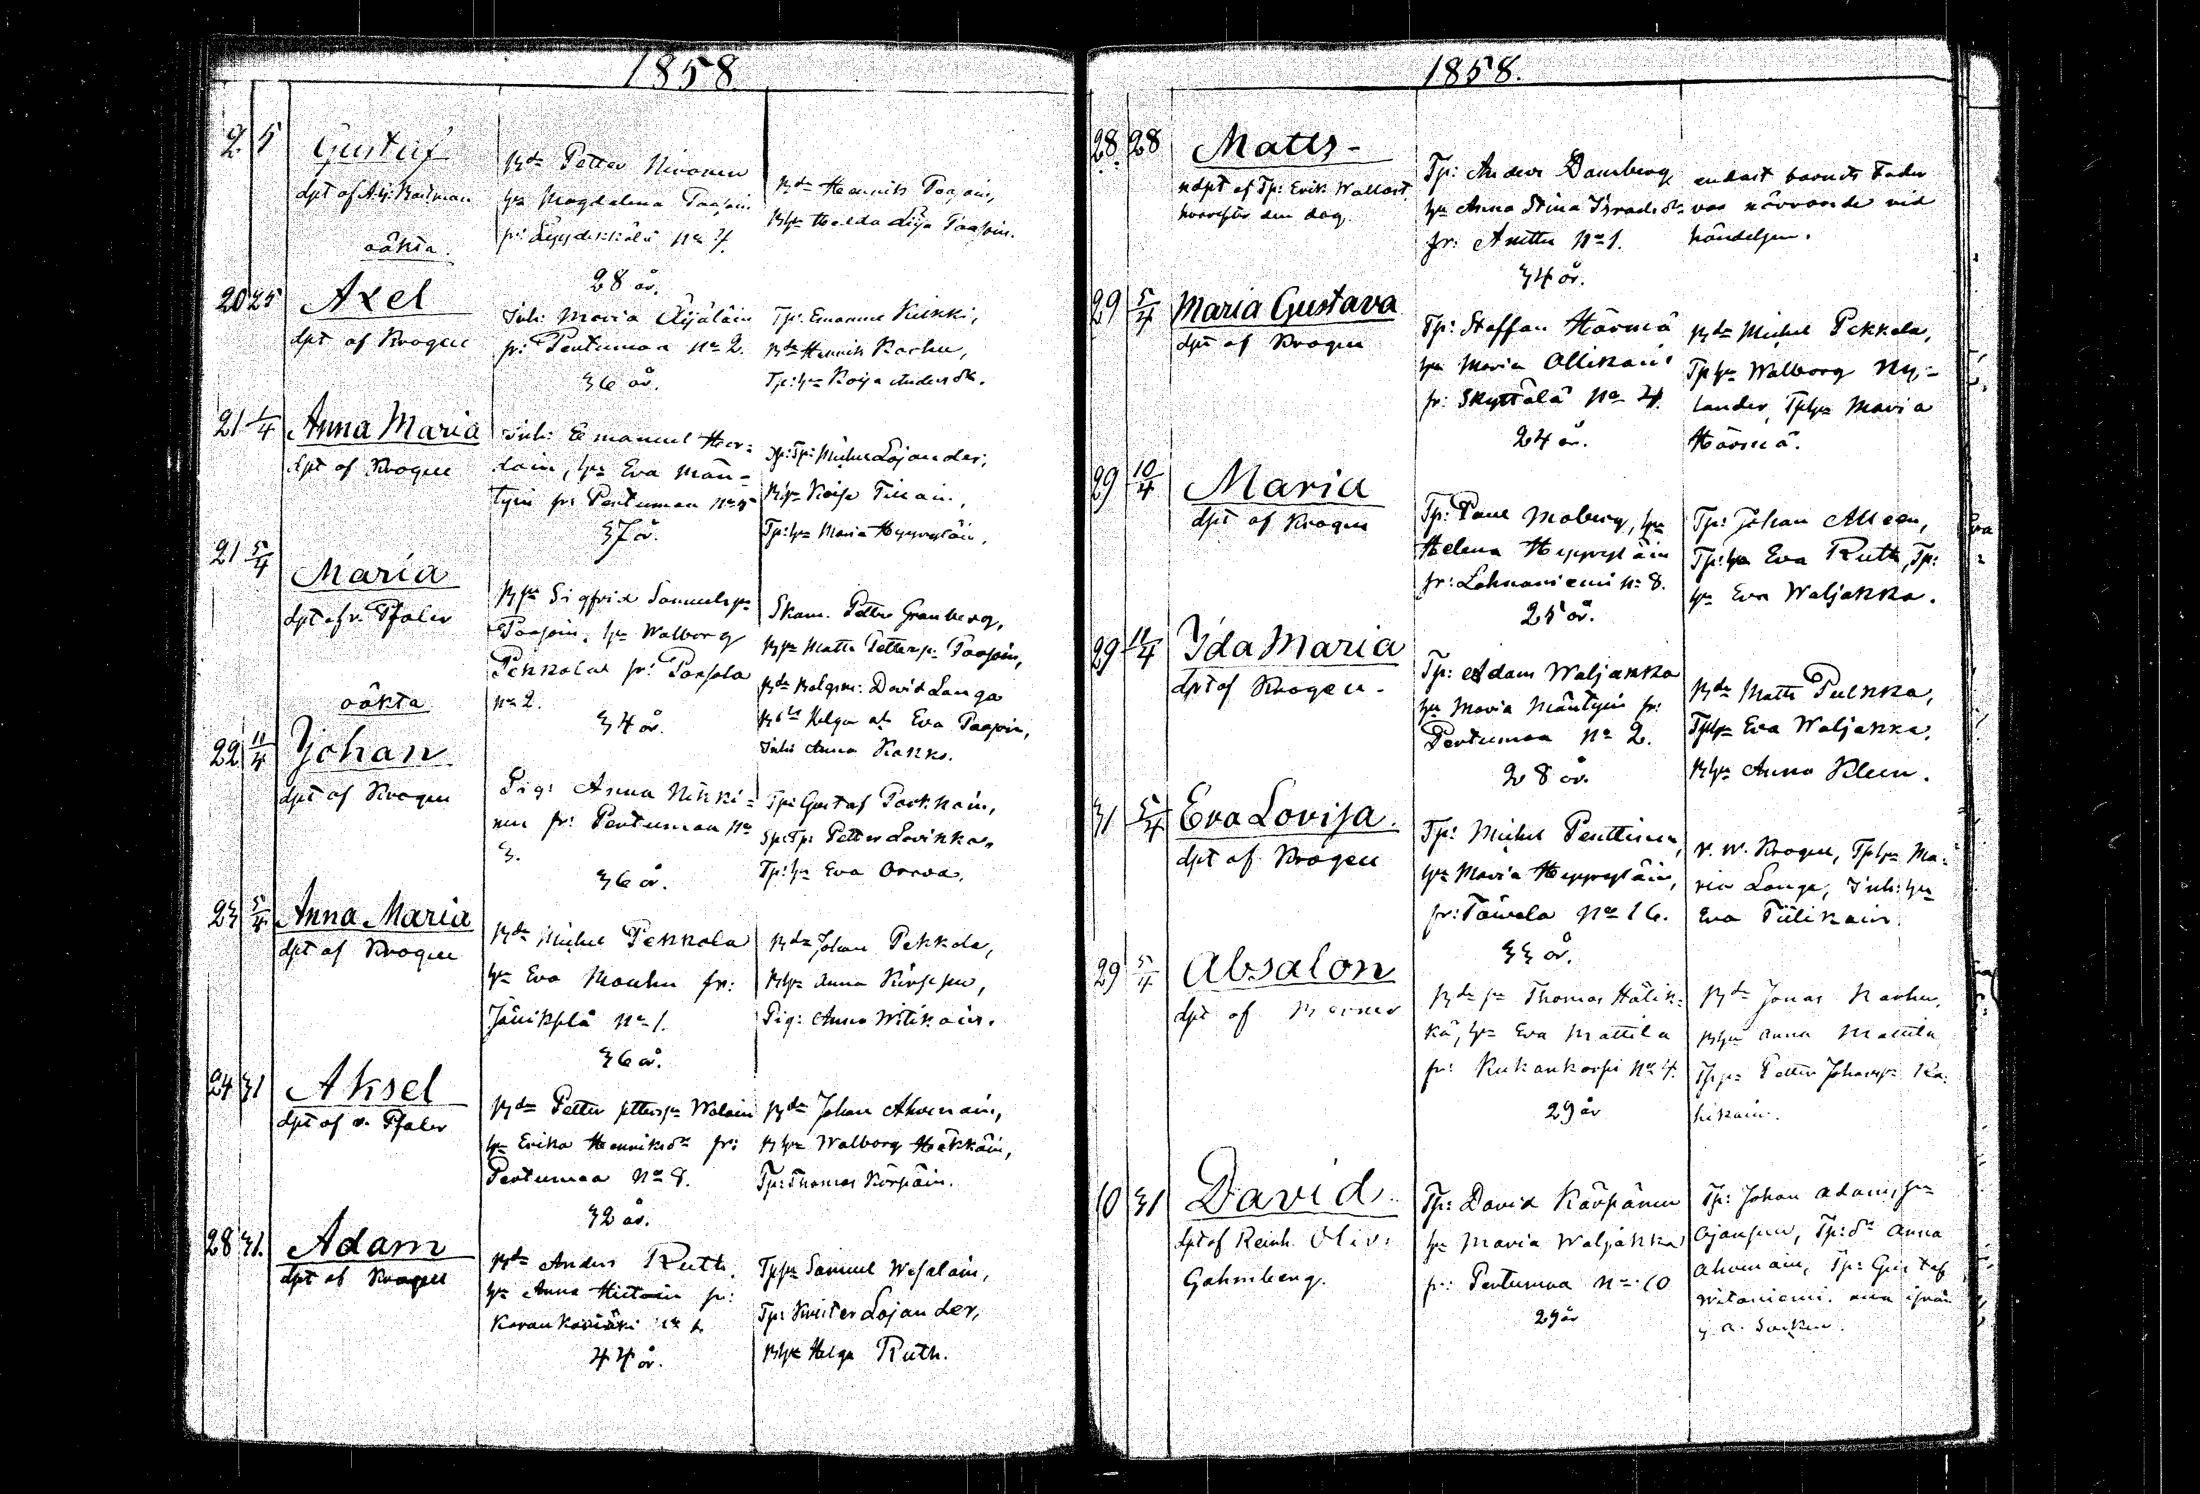 1858
2 5 Gustaf
dpt af
Bde Petter Nironen
hu Magdalena Paajain
fr: No 4.
28 år.
Bde Henrik Paajain,
Bhu Hedda Lisa Paajain.
oäkta.
20 25 Axel
dpt af Krogen
Inh: Maria Äijäläin
fr: Pertumaa No 2.
36 år.
Tp: Emanuel Kinkki,
Bde Henrik Karhu,
Tp:hu Kaisa Andersdr.
21 1/4 Anna Maria
dpt af Krogen
Inh: Emanuel Her-
lain, hu Eva Män-
tyin fr: Pertumaa No
37 år.
Sp:Tp: Michel Lojander,
Bhu Kaisa
Tp:hu Maria Hyyryläin.
21 5/4 Maria
dpt af v. Pfaler
Bsn Sigfrid Samuelsn
Paajain, hu Walborg
Pekkola fr: Paasola
No 2.
34 år.
Skom. Petter Granberg,
Bsn Matts Pettersn Paajain,
Bde David Lauga
Helga at Eva Paajain,
Inh: Anna Kanko.
oäkta
22 11/4 Johan
dpt af Krogen
Pig: Anna Nikki-
nen fr: Pertumaa No
3.
36 år.
Tp: Gustaf Parkkain,
Sp:Tp: Petter Lavikka,
Tp:hu Eva Orava.
23 5/4 Anna Maria
dpt af Krogen
Bde Michel Pekkola
hu Eva Mauhu fr:
No 1.
36 år.
Bde Johan Pekkola,
Bhu Anna
Pig: Anna Witikain.
24 31 Aksel
dpt af v. Pfaler
Bde Petter Pettersn Walain
hu Erika Henriksdr fr:
Pertumaa No 8.
32 år.
Bde Johan Ahvenain,
Bhu Walborg Häkkäin,
Tp: Thomas Kärpäin.
28 31. Adam
dpt af Krogen
Bde Anders Ruth,
hu Anna Hietain fr:
44 år.
Tpsn Samuel Wesalain,
Tp: Krister Lojander,
Bhu Helga Ruth.
1858.
28 28 Matts-
ndpt af Tp: Erik Wallast
hvarefter den dog.
Tp: Anders Damberg
hu Anna Stina Israelsdr
fr: Anttu No 1.
34 år.
endast barnets Fader
var närvarande vid
händelsen.
29 5/4 Maria Gustava
dpt af Krogen
Tp: Staffan Härmä
hu Maria Ollikain
fr: Skyttälä No 4.
24 år.
Bde Michel Pekkola,
Tphu Walborg Ny-
lander, Tphu Maria
Härmä.
29 10/4 Maria
dpt af Krogen
Tp: Paul Moberg, hu
Helena Hyyryläin
fr: Lahnaniemi No 8.
25 år.
Tp: Johan Alleen,
Tp:hu Eva Ruth, Tp:
hu Eva Waljakka.
29 11/4 Ida Maria
dpt af Krogen.
Tp: Adam Waljakka
hu Maria Mäntyin fr:
Pertumaa No 2.
28 år.
Bde Matts Pulkka,
Tphu Eva Waljakka,
Bhu Anna Kleen.
31 5/4 Eva Lovisa.
dpt af Krogen
Tp: Michel Penttinen,
hu Maria Hyyryläin,
fr: No 16.
33 år.
v. W. Krogen, Tphu Ma-
ria Lauga, Inh:hu
Eva Tiilikain.
29 5/4 Absalon
dpt af
Bde sn Thomas Hälik-
kä, hu Eva Mattila
fr: Kukankorpi No 4.
29 år
Bde Jonas Karhu,
Bhu Anna Mattila
Tpsn Petter Johansn Ra-
hikain.
10 31 David.
dpt af Reinh. Oliv:
Gahmberg.
Tp: David Kärpänen
hu Maria Waljakka
fr: Pertumaa No 10
29 år
Tp: Johan Adamsn
Tp:dr Anna
Ahvenain, Tp: Gustaf
Witaniemi. från
Socken.